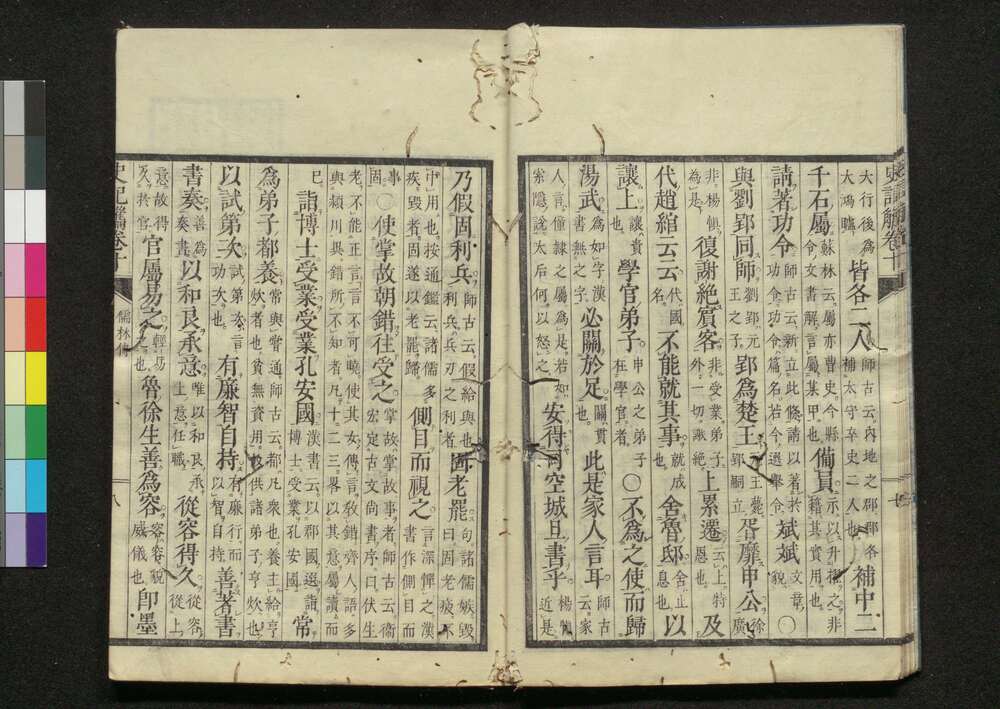 史記觽卷十
大行後為大鴻臚 皆各二人 師古云內地之郡郡各補太守卒史二人也 補中二
千石屬 蘇林云屬亦曹史今縣令文書解言屬某甲也 備員 示以升擢之非籍其實用也
請著功令 師古云新立此條請以著於功令功令篇名若今選舉令 斌斌 文章貌 〇
與劉郢同師 劉郢元王之子 郢為楚王 王薨郢嗣立 胥靡申公 徐廣
非楊慎為是 復謝絕賓客 非受業弟子外一切謝絕 上累遷 云上特恩也 及
代趙綰云云 代國名 不能就其事 就成也 舍魯邸 舍止息也 以
讓上 讓責也 學官弟子 申公之弟子在學官者 〇不為之使而歸
湯武 為如字漢書無之字 必關於足 關貫也 此是家人言耳 師古云家
人言僮隸之屬為是若如索隱說太后何以怒之 安得司空城旦書乎 楊慎近是
乃假固利兵 師古云假給與也利兵兵刃之利者 固老罷 句諸儒嫉毀曰固老疲不
中用也按通鑑云諸儒多疾毀者固遂以老罷歸 側目而視之 言深憚之漢書作側目而事
固 〇使掌故朝錯往受之 掌故掌故事者師古云衛宏定古文尚書序曰伏生
老不能正言言不可曉使其女傳言教錯齊人語多與潁川異錯所不知者凡十二三畧以其意屬讀而
已 詣博士受業受業孔安國 漢書云以郡國選詣博士受業孔安國 常
為弟子都養 常與嘗通師古云都凡衆也養主給亨炊者也貧無資用故供諸弟子亨炊也
以試第次 試第次言功次也 有廉智自持 有廉行而以智自持 善著書
書奏 善為奏書 以和良承意 唯以和良承上意任職 從容得久 從容從上
意故得久於官 官屬易之 輕易之也 魯徐生善為容 容容貌威儀也 即墨
史記觽卷十 儒林傳 八